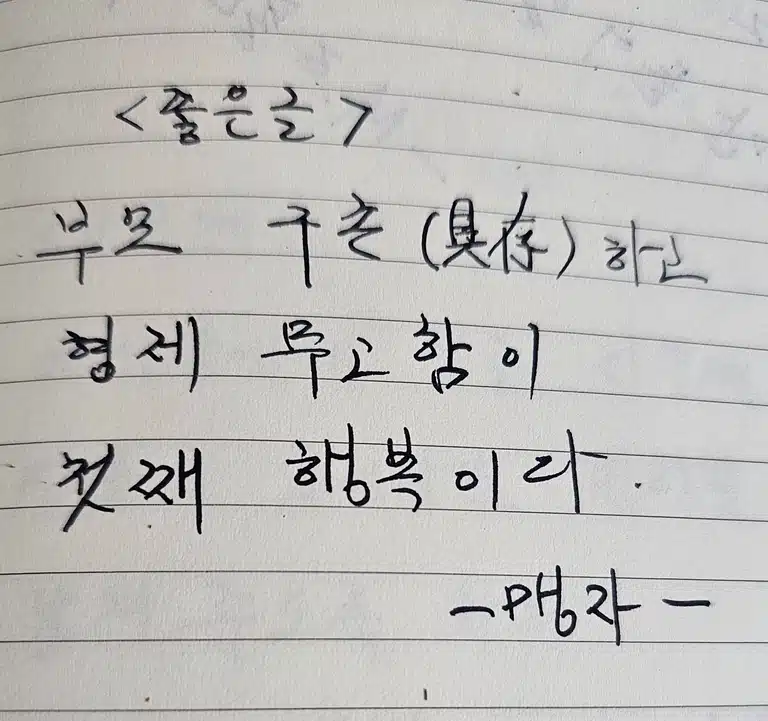 <좋은글>
부모 구존(具存)하고
형제 무고함이
첫째 행복이다.
-맹자-